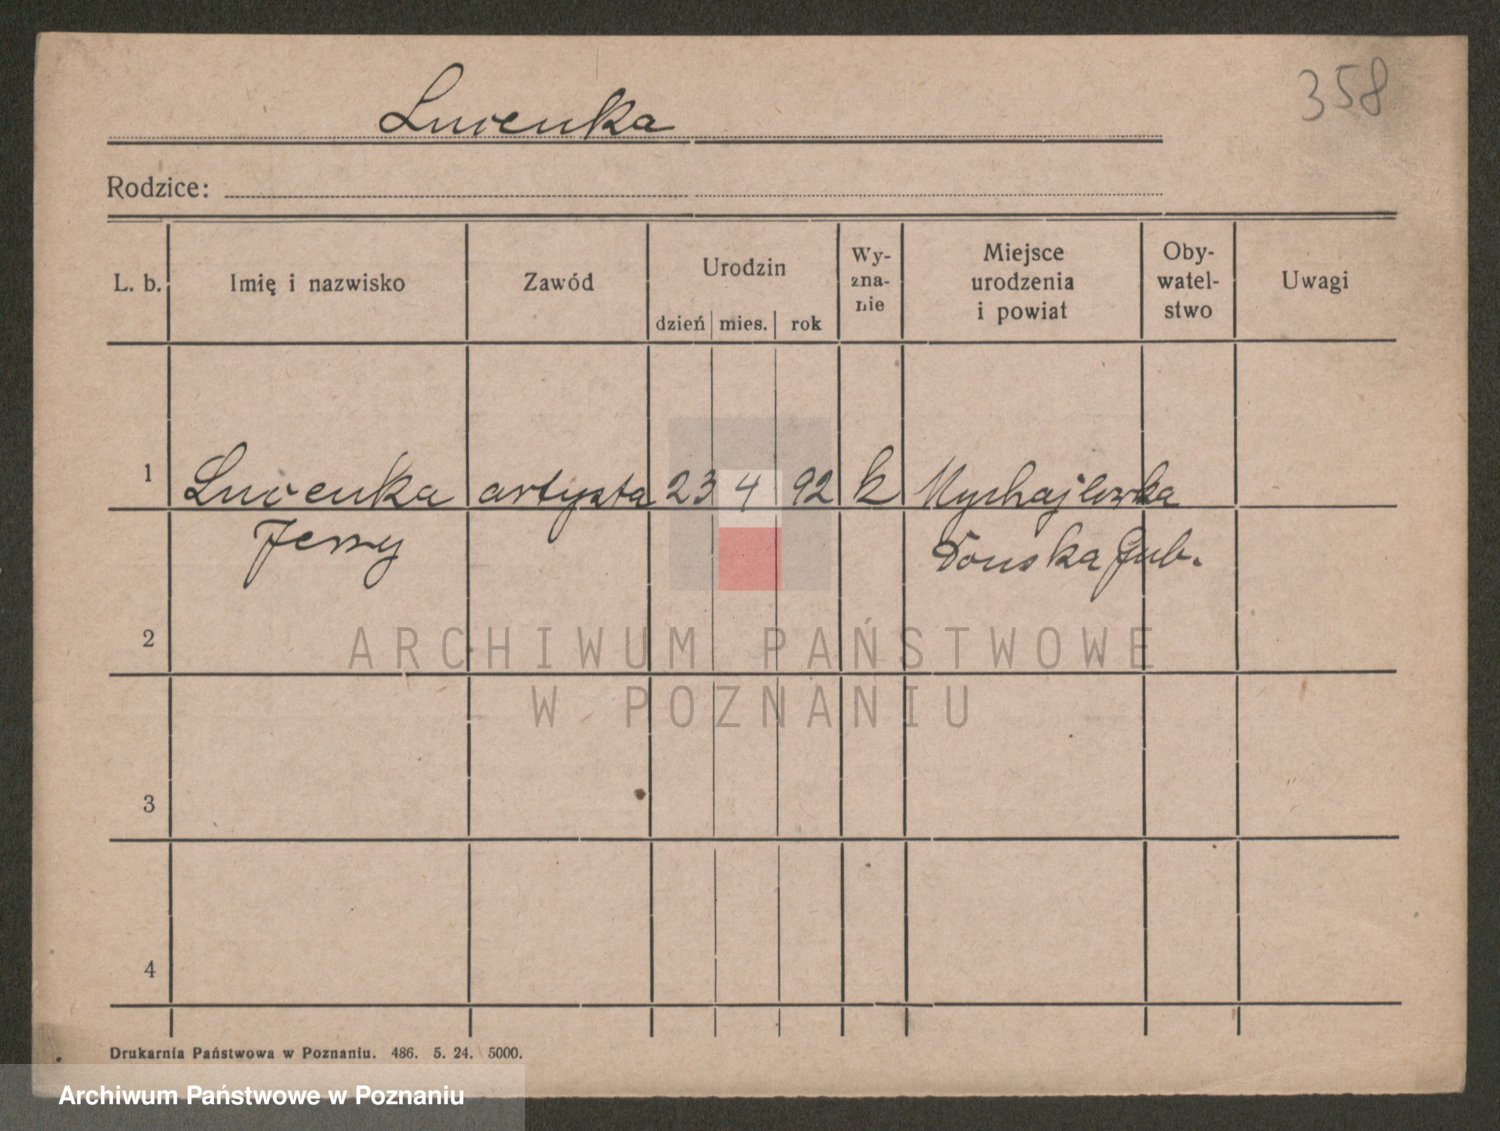 358
Lucenka
Rodzice:
L. b. Imię i nazwisko Zawód Urodzin dzień mies. rok Wy-zna-nie Miejsce urodzenia i powiat Oby-watel-stwo Uwagi
1 Lucenka artysta 23 4 92 k Mychajlowka
Jerzy Donska Gub.
2
3
4
Drukarnia Państwowa w Poznaniu. 486. 5. 24. 5000.
ARCHIWUM PAŃSTWOWE
W POZNANIU
Archiwum Państwowe w Poznaniu